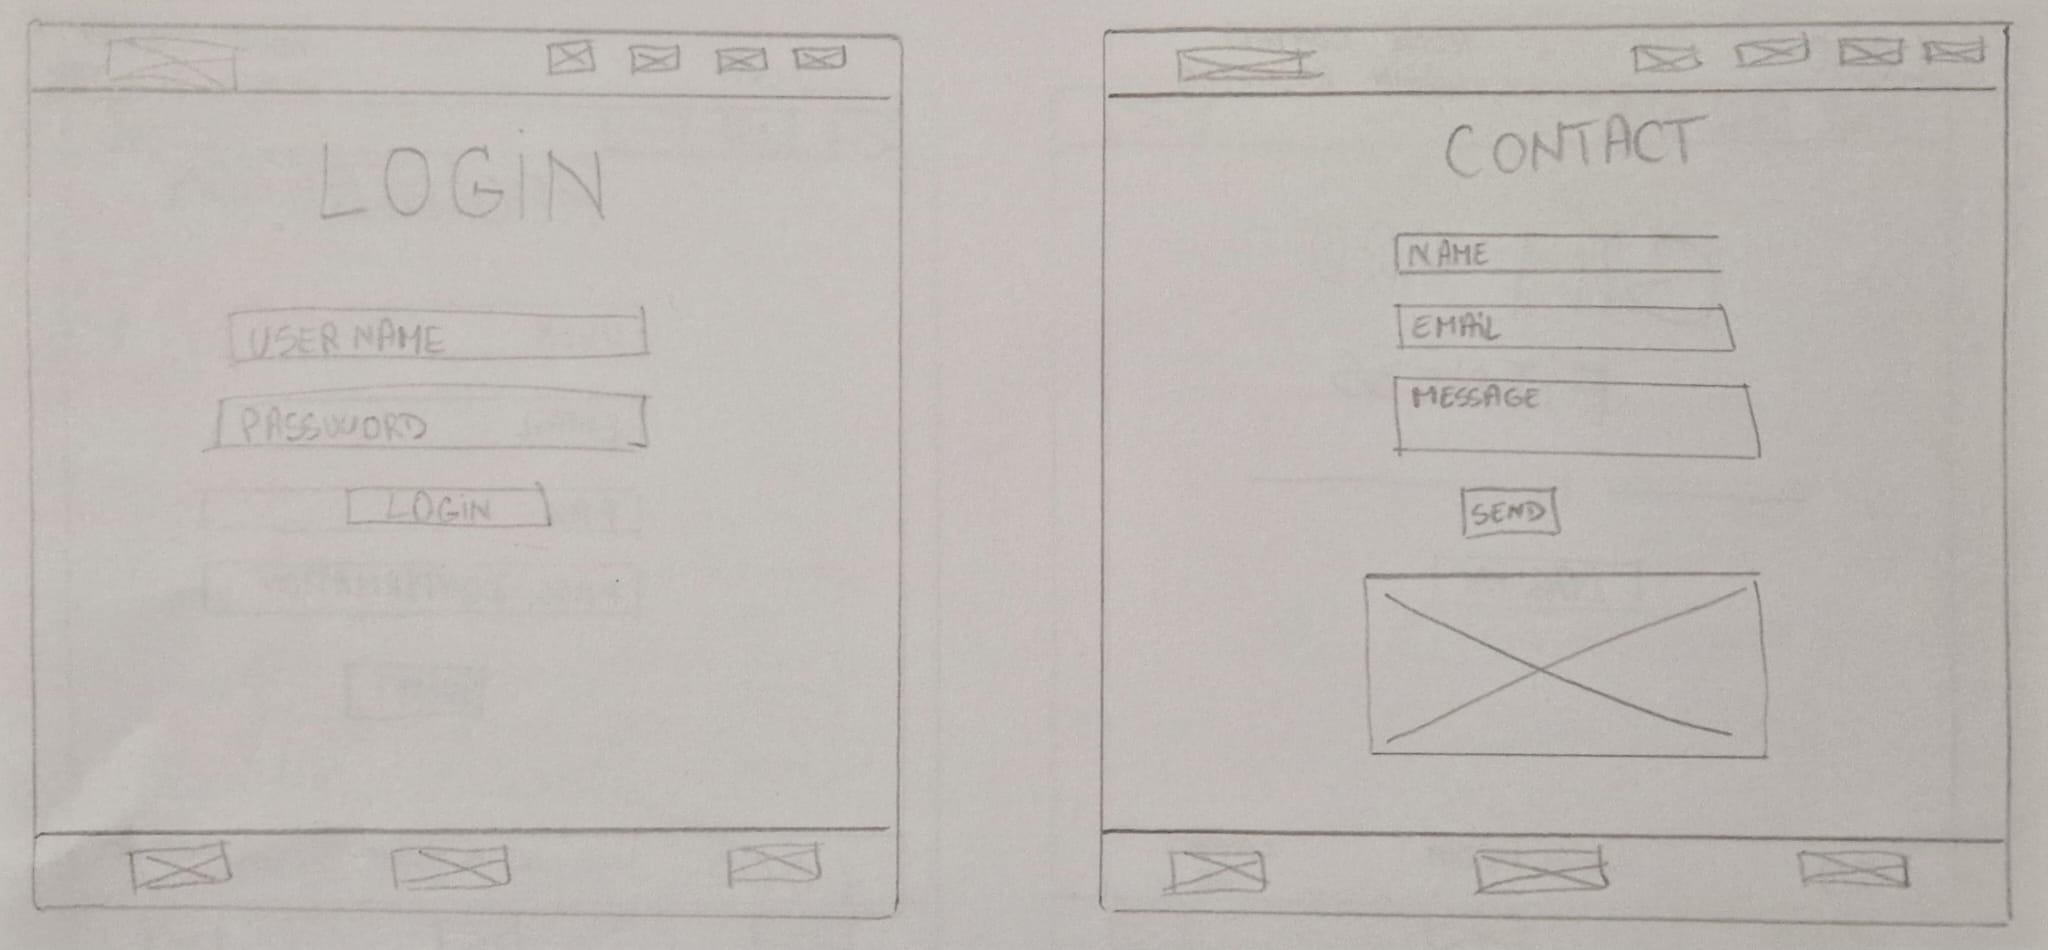 LOGIN
USERNAME
PASSWORD
LOGIN
CONTACT
NAME
EMAIL
MESSAGE
SEND